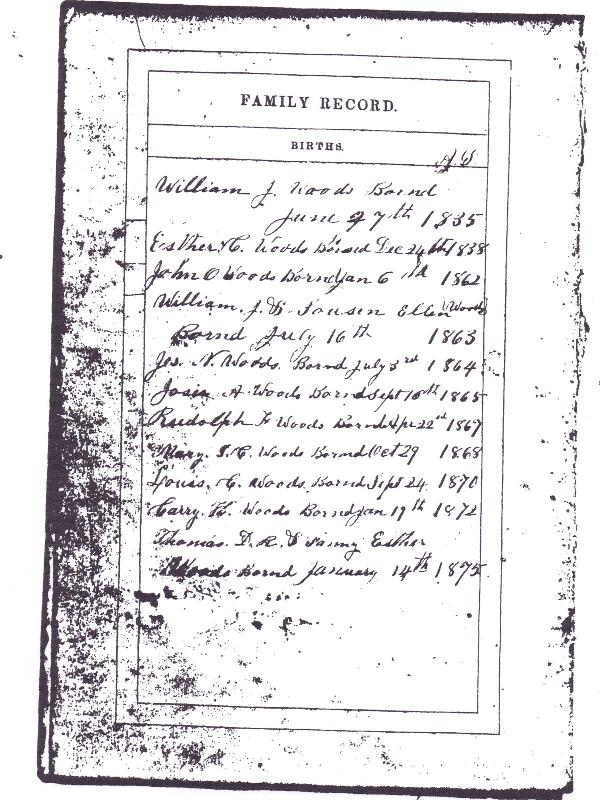 FAMILY RECORD.
BIRTHS.
William J. Woods Bornd
June 27th 1835
Esther. C. Woods Bornd Dec 24th 1838
John O Woods Bornd Jan 6 1862
William. J. & Ellen Woods
Bornd July 16th 1863
Jos. N. Woods. Bornd July 3rd 1864
A. Woods Bornd Sept 10th 1865
Rudolph F Woods Bornd Apr 22nd 1867
Mary. C. Woods Bornd Oct 29 1868
Louis. C. Woods. Bornd Sept 24 1870
Carry. Woods Bornd Jan 19th 1872
Thomas. D. R. & Fanny Esther
Woods Bornd January 14th 1875